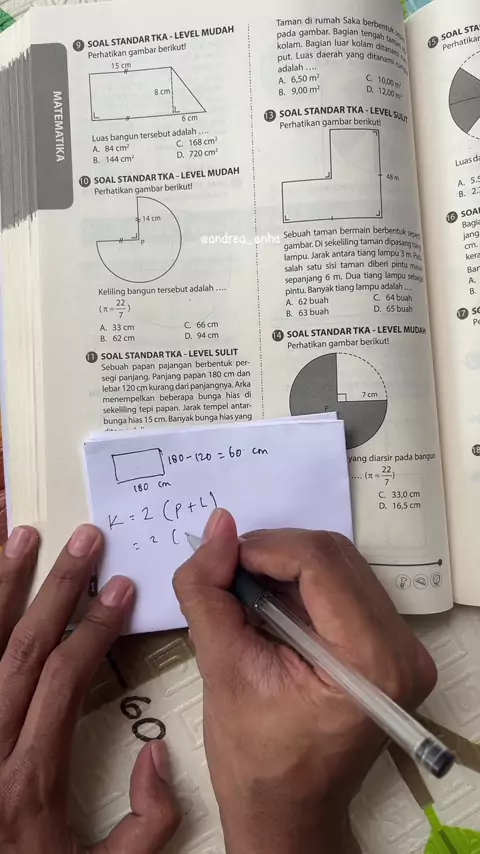 MATEMATIKA
9 SOAL STANDAR TKA - LEVEL MUDAH
Perhatikan gambar berikut!
15 cm
8 cm
6 cm
Luas bangun tersebut adalah ....
A. 84 cm² C. 168 cm²
B. 144 cm² D. 720 cm²
10 SOAL STANDAR TKA - LEVEL MUDAH
Perhatikan gambar berikut!
14 cm
P
Keliling bangun tersebut adalah ....
(π = 22/7)
A. 33 cm C. 66 cm
B. 62 cm D. 94 cm
11 SOAL STANDAR TKA - LEVEL SULIT
Sebuah papan pajangan berbentuk per-
segi panjang. Panjang papan 180 cm dan
lebar 120 cm kurang dari panjangnya. Arka
menempelkan beberapa bunga hias di
sekeliling tepi papan. Jarak tempel antar-
bunga hias 15 cm. Banyak bunga hias yang
Taman di rumah Saka berbentuk
pada gambar. Bagian tengah
kolam. Bagian luar kolam ditanami
put. Luas daerah yang ditanami
adalah ....
A. 6,50 m² C. 10,00 m²
B. 9,00 m² D. 12,00
13 SOAL STANDAR TKA - LEVEL SULIT
Perhatikan gambar berikut!
48 m
Sebuah taman bermain berbentuk
gambar. Di sekeliling taman dipasang
lampu. Jarak antara tiang lampu 3 m.
salah satu sisi taman diberi pintu
sepanjang 6 m. Dua tiang lampu
pintu. Banyak tiang lampu adalah ....
A. 62 buah C. 64 buah
B. 63 buah D. 65 buah
14 SOAL STANDAR TKA - LEVEL MUDAH
Perhatikan gambar berikut!
7 cm
yang diarsir pada bangun
.... (π = 22/7)
C. 33,0 cm
D. 16,5 cm
15 SOAL
Perhatikan
Luas
A. 5,5
B. 2.
16 SOAL
jang
cm.
A.
B.
17
18
@andrea_enha
180 - 120 = 60 cm
180 cm
K = 2 (P + L)
= 2 (
60